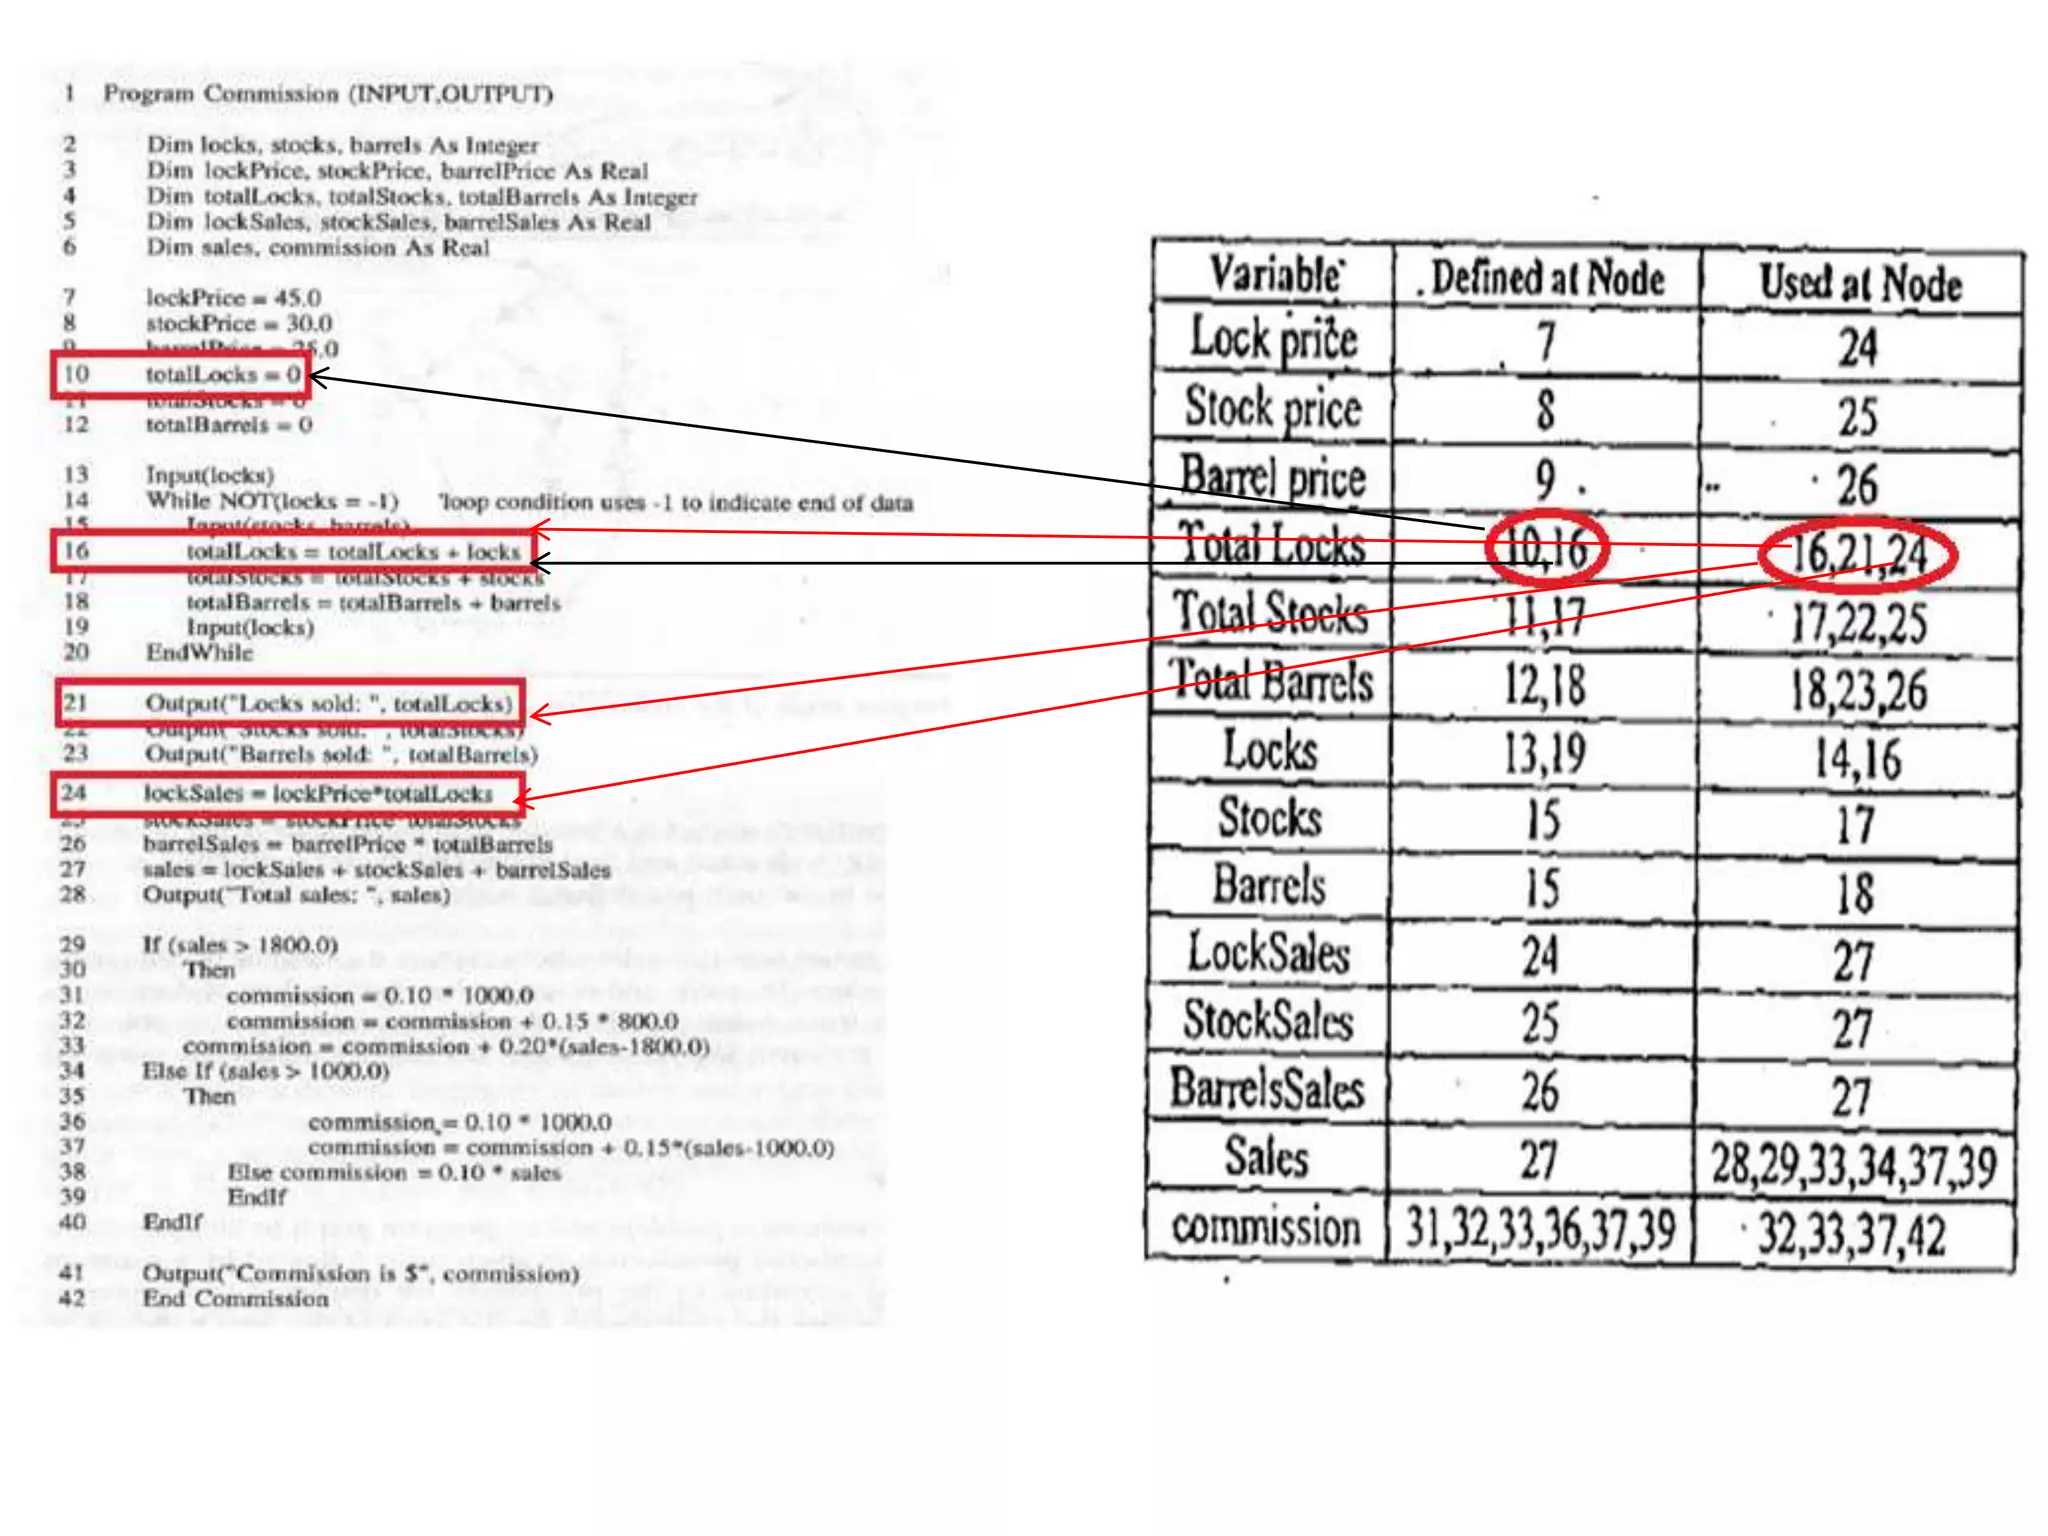 1 Program Commission (INPUT,OUTPUT)
2 Dim locks, stocks, barrels As Integer
3 Dim lockPrice, stockPrice, barrelPrice As Real
4 Dim totalLocks, totalStocks, totalBarrels As Integer
5 Dim lockSales, stockSales, barrelSales As Real
6 Dim sales, commission As Real
7 lockPrice = 45.0
8 stockPrice = 30.0
9 barrelPrice = 25.0
10 totalLocks = 0
11 totalStocks = 0
12 totalBarrels = 0
13 Input(locks)
14 While NOT(locks = -1) 'loop condition uses -1 to indicate end of data
15 Input(stocks, barrels)
16 totalLocks = totalLocks + locks
17 totalStocks = totalStocks + stocks
18 totalBarrels = totalBarrels + barrels
19 Input(locks)
20 EndWhile
21 Output("Locks sold: ", totalLocks)
22 Output("Stocks sold: ", totalStocks)
23 Output("Barrels sold: ", totalBarrels)
24 lockSales = lockPrice*totalLocks
25 stockSales = stockPrice*totalStocks
26 barrelSales = barrelPrice * totalBarrels
27 sales = lockSales + stockSales + barrelSales
28 Output("Total sales: ", sales)
29 If (sales > 1800.0)
30 Then
31 commission = 0.10 * 1000.0
32 commission = commission + 0.15 * 800.0
33 commission = commission + 0.20*(sales-1800.0)
34 Else If (sales > 1000.0)
35 Then
36 commission = 0.10 * 1000.0
37 commission = commission + 0.15*(sales-1000.0)
38 Else commission = 0.10 * sales
39 EndIf
40 EndIf
41 Output("Commission is $", commission)
42 End Commission
Variable Defined at Node Used at Node
Lock price 7 24
Stock price 8 25
Barrel price 9 26
Total Locks 10,16 16,21,24
Total Stocks 11,17 17,22,25
Total Barrels 12,18 18,23,26
Locks 13,19 14,16
Stocks 15 17
Barrels 15 18
LockSales 24 27
StockSales 25 27
BarrelsSales 26 27
Sales 27 28,29,33,34,37,39
commission 31,32,33,36,37,39 32,33,37,42